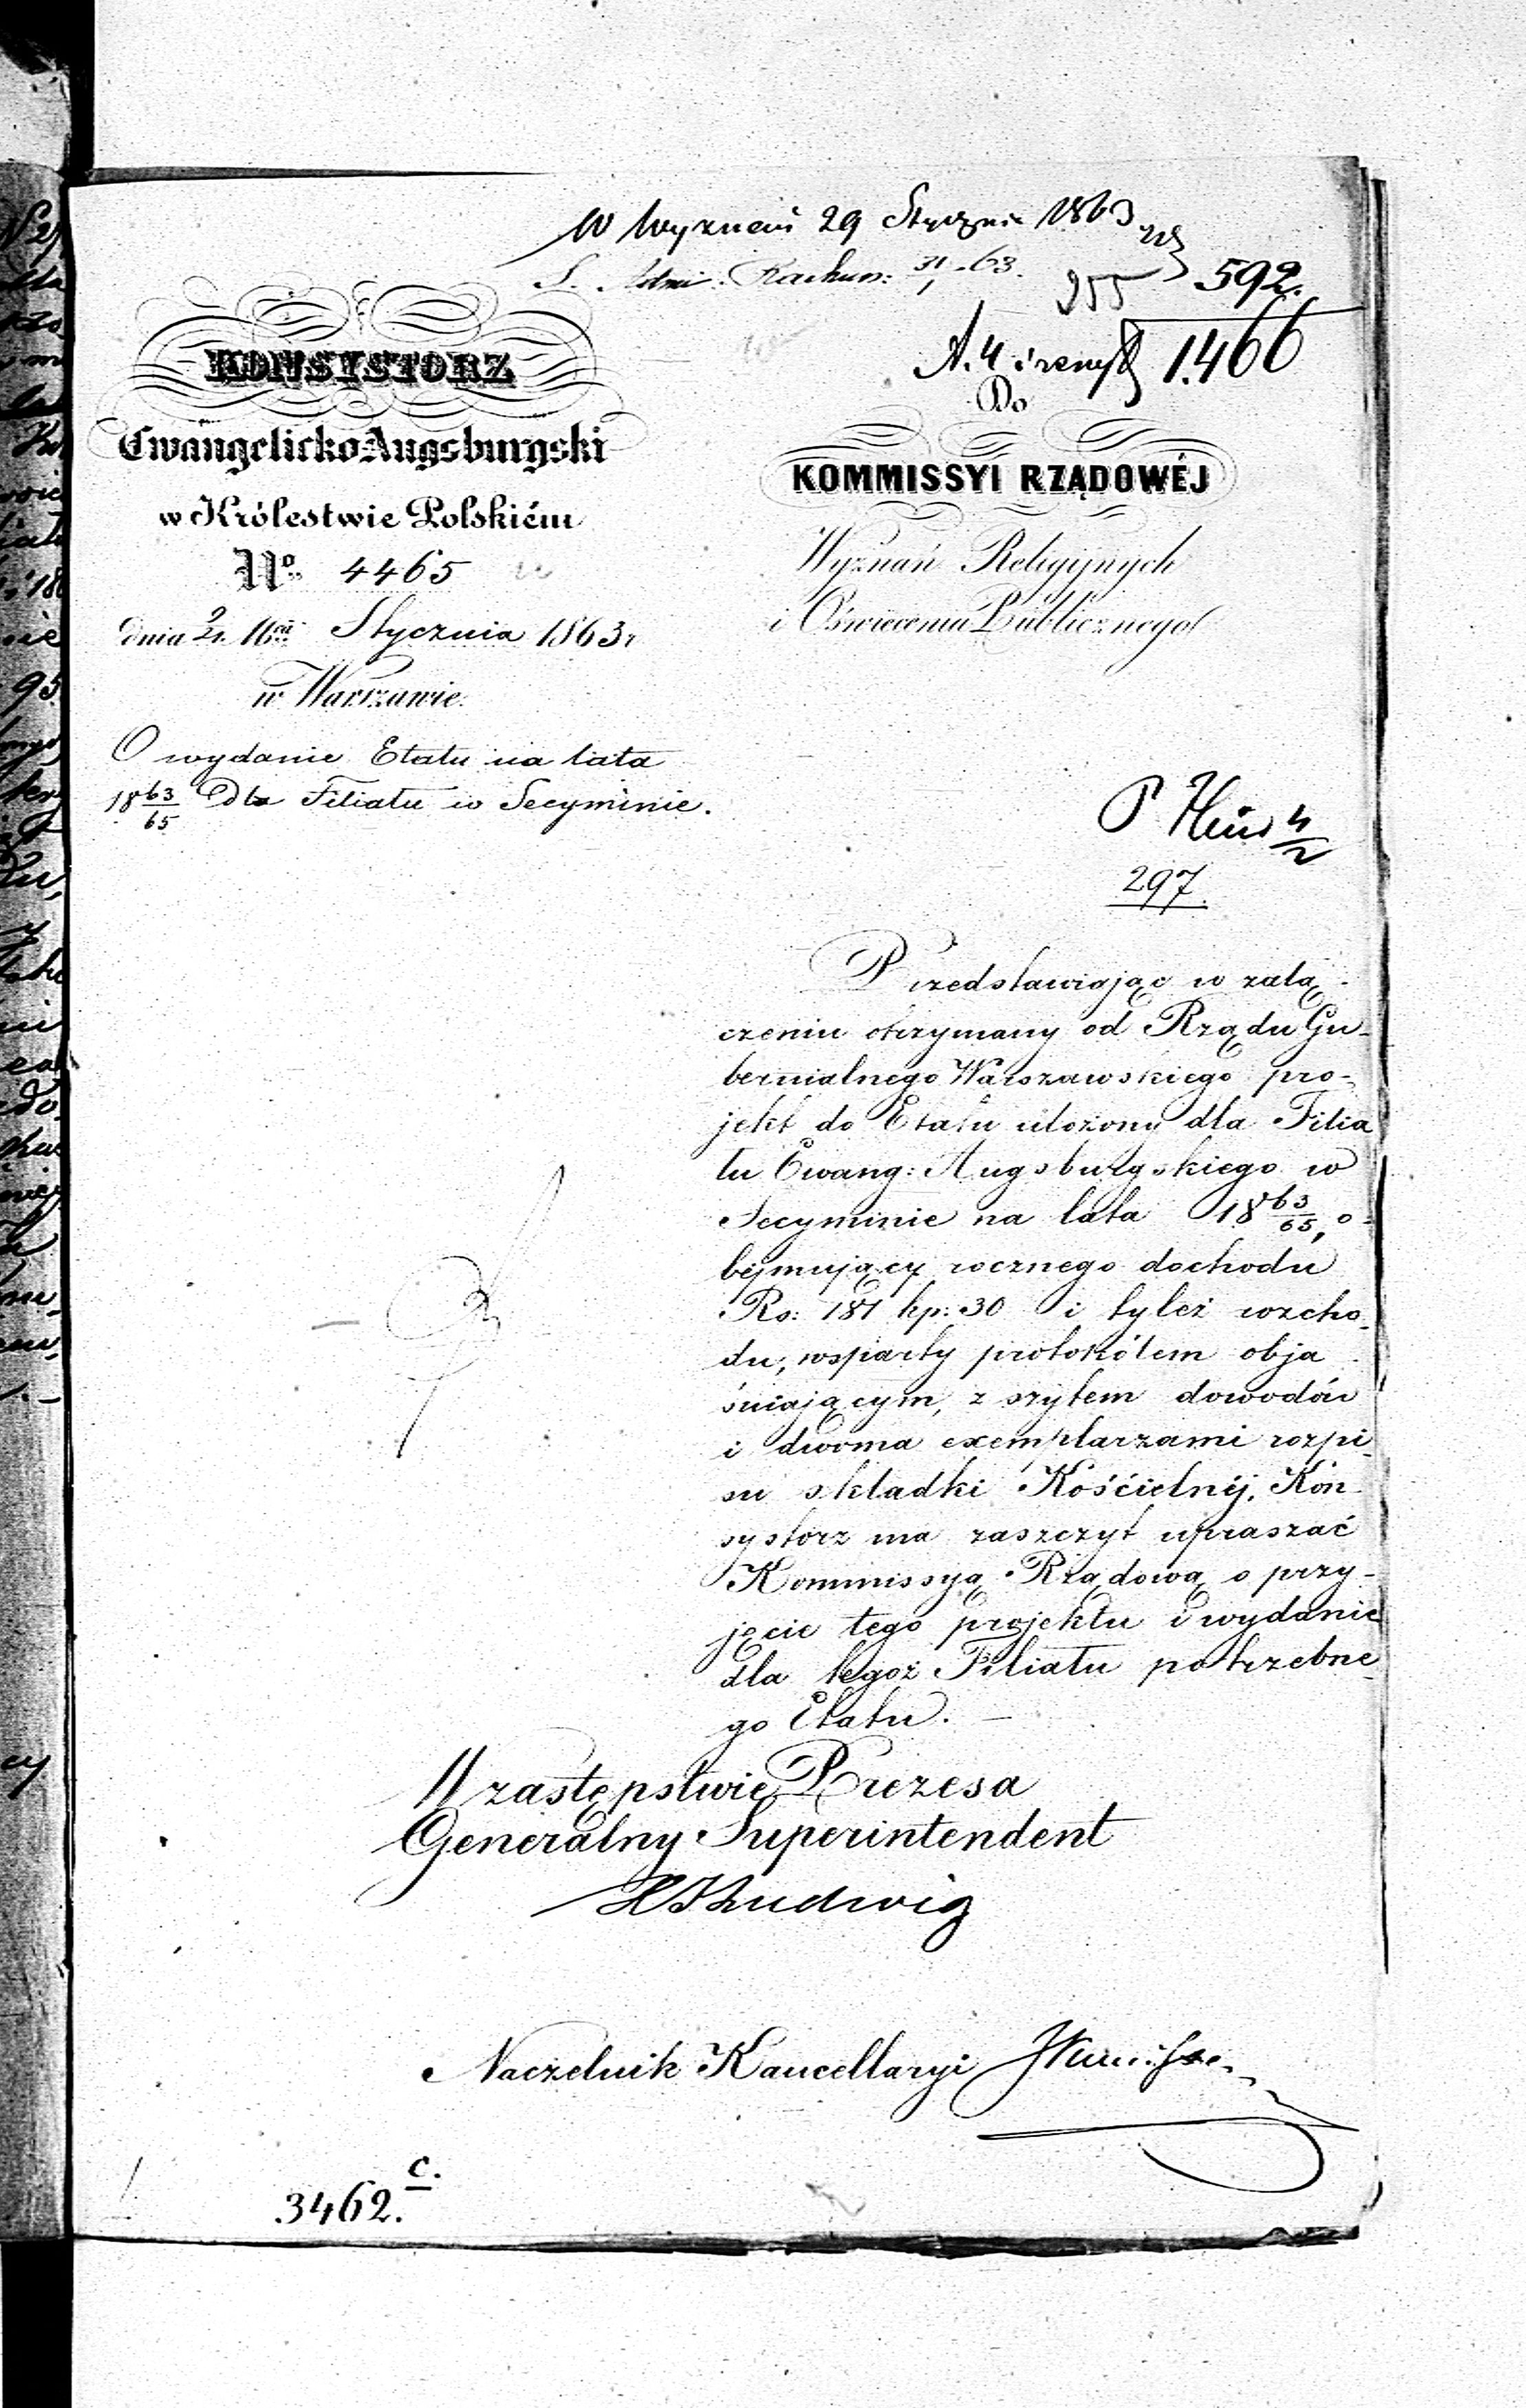 W Wyznań 29 Stycznia 1863
Rachun: 31/1 - 63.
955 592.
A. 4 1.466
KONSYSTORZ
Ewangelicko-Augsburgski
w Królestwie Polskiém
No 4465
dnia 16 Stycznia 1863 r
w Warszawie.
O wydanie Etatu na lata
18 63/65 dla Filiału w Secyminie.
Do
KOMMISSYI RZĄDOWÉJ
Wyznań Religijnych
i Oświecenia Publicznego
4/2
297.
Przedstawiając w załą-
czeniu otrzymany od Rządu Gu-
bernialnego Warszawskiego pro-
jekt do Etatu ułożony dla Filia
łu Ewang: Augsburgskiego w
Secyminie na lata 18 63/65, o-
bejmujący rocznego dochodu
Rs: 181 kp: 30 i tyleż rozcho-
du, wsparty protokółem obja
śniającym, z szytem dowodów
i dwoma exemplarzami rozpi
su składki Kościelnéj, Kon
systorz ma zaszczyt upraszać
Kommissyą Rządową o przy-
jęcie tego projektu i wydanie
dla tegoż Filiału potrzebne
go Etatu. —
W zastępstwie Prezesa
Generalny Superintendent
Ludwig
Naczelnik Kancellaryi
3462. c.